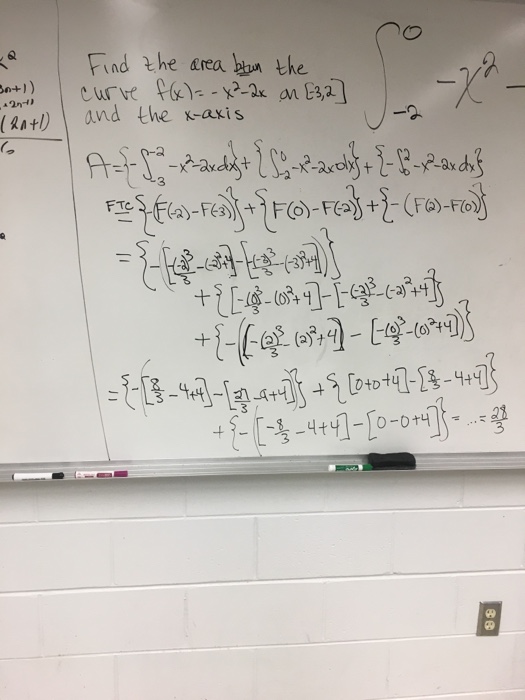 Find the area btwn the
curve f(x) = -x²-2x on [-3,2]
and the x-axis
∫₋₂⁰ -x² -
3n+1)
(2n+1)
6
A = {-∫₋₃⁻² -x²-2x dx} + {∫₋₂⁰ -x²-2x dx} + {-∫₀² -x²-2x dx}
FTC = {-(F(-2)-F(-3))} + {F(0)-F(-2)} + {-(F(2)-F(0))}
= {-([-(-2)³/3 -(-2)²+4] - [-(-3)³/3 -(-3)²+4])}
+ {[-(0)³/3 -(0)²+4] - [-(-2)³/3 -(-2)²+4]}
+ {-([-(2)³/3 -(2)²+4] - [-(0)³/3 -(0)²+4])}
= {-([8/3 -4+4] - [27/3 -9+4])} + {[0+0+4] - [8/3 -4+4]}
+ {-([-8/3 -4+4] - [0-0+4])} = ... = 28/3